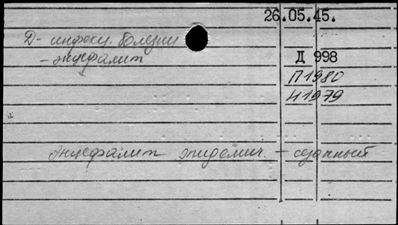 26.05.45.
Д - инфекц. болезни
- энцефалит
Д 998
П1980
И1979
Энцефалит эпидемич. - сезонный